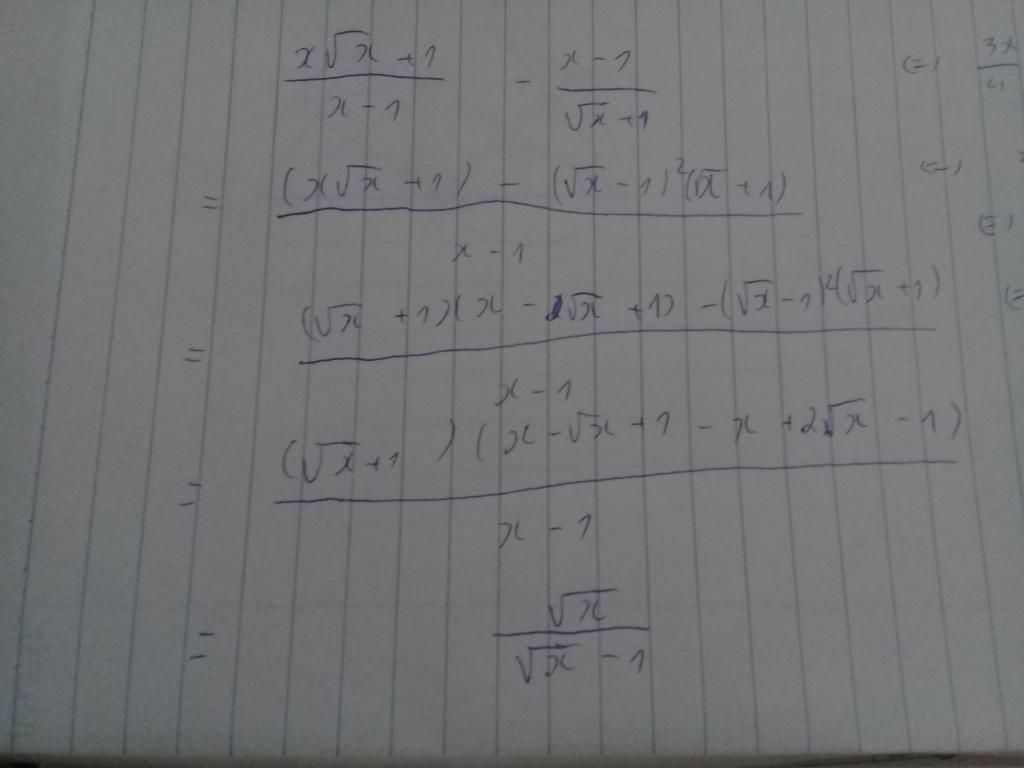 (x√x + 1)/(x - 1) - (x - 1)/(√x + 1) <=> 3x/4
= ((x√x + 1) - (√x - 1)²(√x + 1))/(x - 1) <=>
= ((√x + 1)(x - √x + 1) - (√x - 1)²(√x + 1))/(x - 1)
= ((√x + 1)(x - √x + 1 - x + 2√x - 1))/(x - 1)
= √x/(√x - 1)